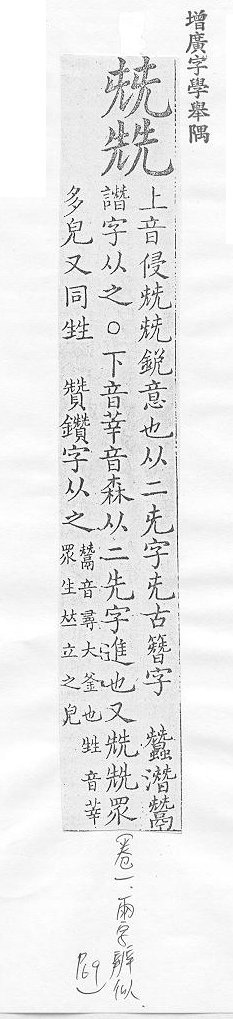 增廣字學舉隅
兓兟
上音侵兓兓銳意也从二兂字兂古簪字 蠶潛鬵
譖字从之○下音莘音森从二先字進也又兟兟眾
多皃又同甡 贊鑽字从之 鬵音尋大釜也 甡音莘
眾生𠀤立之皃
(卷一、兩字辨似、
P69)